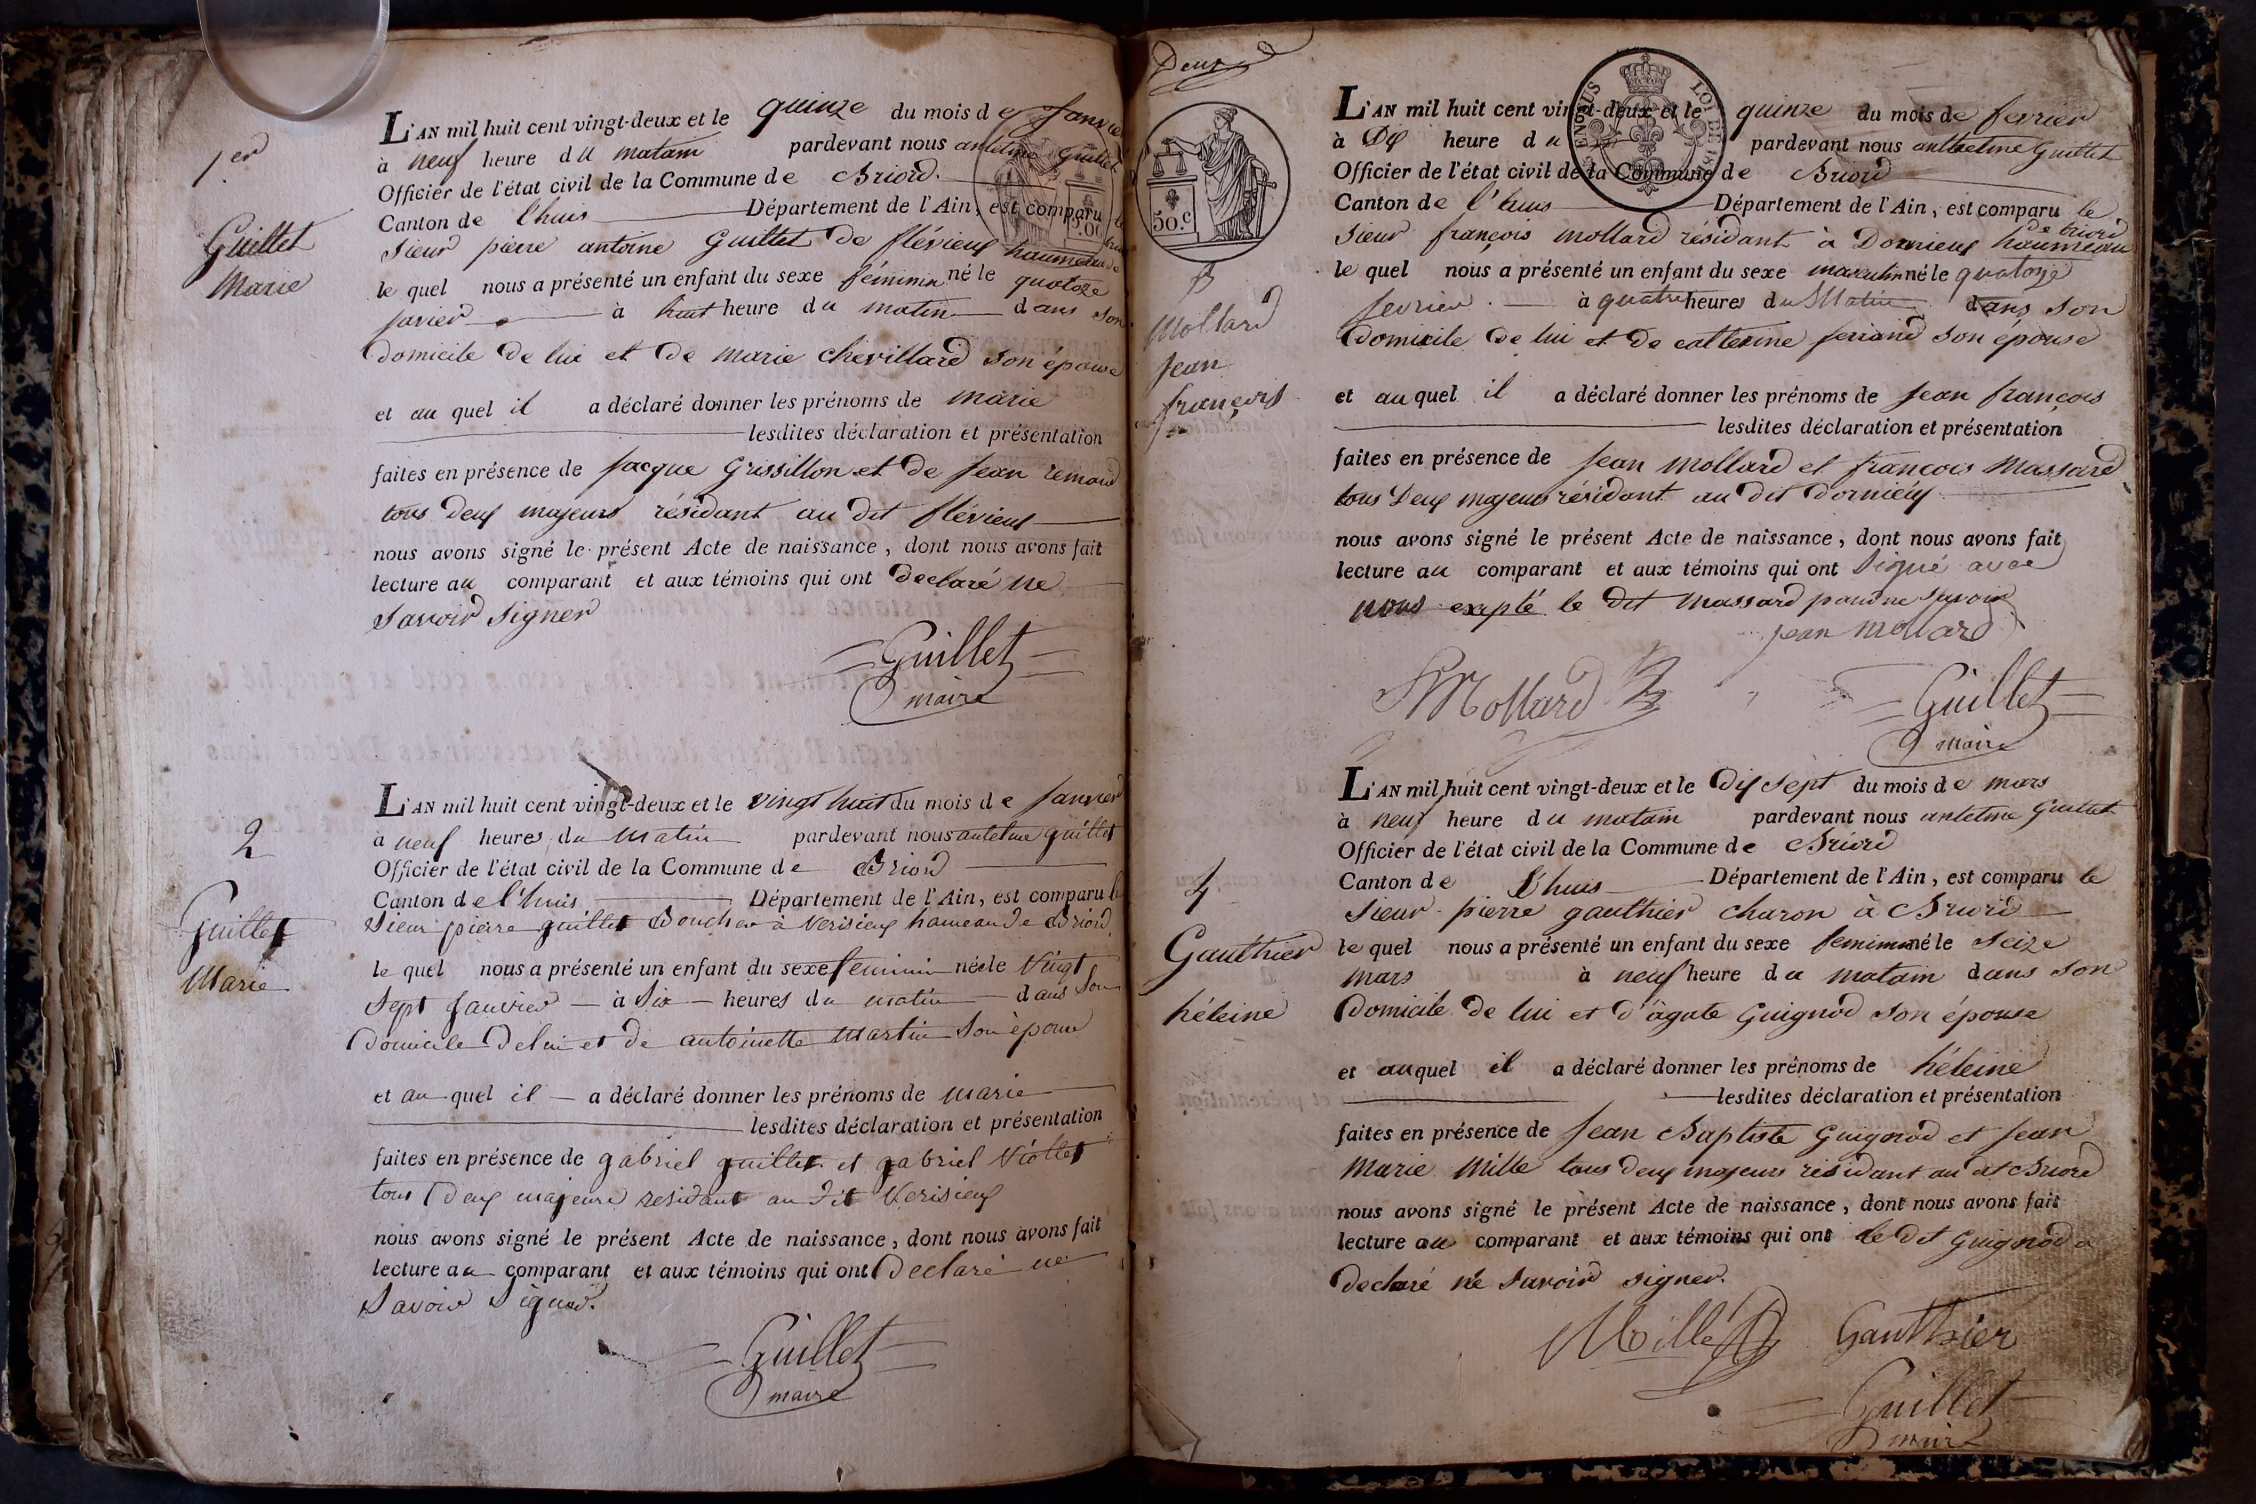 1.er
Guillet
Marie
L'AN mil huit cent vingt-deux et le quinze du mois de Janvier
à neuf heure du matain pardevant nous antelme Guillet
Officier de l'état civil de la Commune de Briord
Canton de l'huis Département de l'Ain, est comparu le
Sieur pierre antoine Guillet de flévieux haumeau de
le quel nous a présenté un enfant du sexe féminin né le quatoze
javier à huit heure du matin dans son
domicile de lui et de marie chevillard son épouse
et au quel il a déclaré donner les prénoms de marie
lesdites déclaration et présentation
faites en présence de jacque Grissillon et de jean remond
tous deux majeurs résidant au dit flévieux
nous avons signé le présent Acte de naissance, dont nous avons fait
lecture au comparant et aux témoins qui ont declaré ne
savoir signer
Guillet
maire
2
Guillet
Marie
L'AN mil huit cent vingt-deux et le vingt huit du mois de janvier
à neuf heures du matin pardevant nous antelme guillet
Officier de l'état civil de la Commune de Briord
Canton de l'huis Département de l'Ain, est comparu le
Sieur pierre guillet Boucher à Verisieux hameau de Briord
le quel nous a présenté un enfant du sexe feminin née le Vingt
Sept Janvier à Six heures du matin dans Son
domicile de lui et de antoinette Martin Son épouse
et au quel il a déclaré donner les prénoms de marie
lesdites déclaration et présentation
faites en présence de gabriel guillet et gabriel Viollet
tous deux majeurs residant au dit Verisieux
nous avons signé le présent Acte de naissance, dont nous avons fait
lecture au comparant et aux témoins qui ont Declaré ne
Savoir Signer.
Guillet
maire
Deux
50.c
3
Mollard
Jean
françois
L'AN mil huit cent vingt-deux et le quinze du mois de fevrier
à Dix heure du pardevant nous anthelme Guillet
Officier de l'état civil de la Commune de Briord
Canton de l'huis Département de l'Ain, est comparu le
Sieur françois mollard résidant à Dornieux haumeau
de briord
le quel nous a présenté un enfant du sexe masculin né le quatoze
fevrier à quatre heures du Matin dans son
domicile de lui et de catterine ferrand son épouse
et au quel il a déclaré donner les prénoms de jean françois
lesdites déclaration et présentation
faites en présence de jean mollard et françois Massard
tous Deux majeurs résidant au dit dornieux
nous avons signé le présent Acte de naissance, dont nous avons fait
lecture au comparant et aux témoins qui ont signé avec
nous exepté le dit massard pour ne savoir
jean mollard
f Mollard
Guillet
maire
4
Gauthier
héleine
L'AN mil huit cent vingt-deux et le dix sept du mois de mars
à neuf heure du matain pardevant nous antelme Guillet
Officier de l'état civil de la Commune de Briord
Canton de l'huis Département de l'Ain, est comparu le
Sieur pierre gauthier charon à Briord
le quel nous a présenté un enfant du sexe feminin né le seize
mars à neuf heure du matain dans son
domicile de lui et d'agate Guignod son épouse
et au quel il a déclaré donner les prénoms de héleine
lesdites déclaration et présentation
faites en présence de jean Baptiste Guignod et jean
marie mille tous deux majeurs résidant au dit Briord
nous avons signé le présent Acte de naissance, dont nous avons fait
lecture au comparant et aux témoins qui ont le dit Guignod a
declaré ne savoir signer.
Millé Gauthier
Guillet
maire